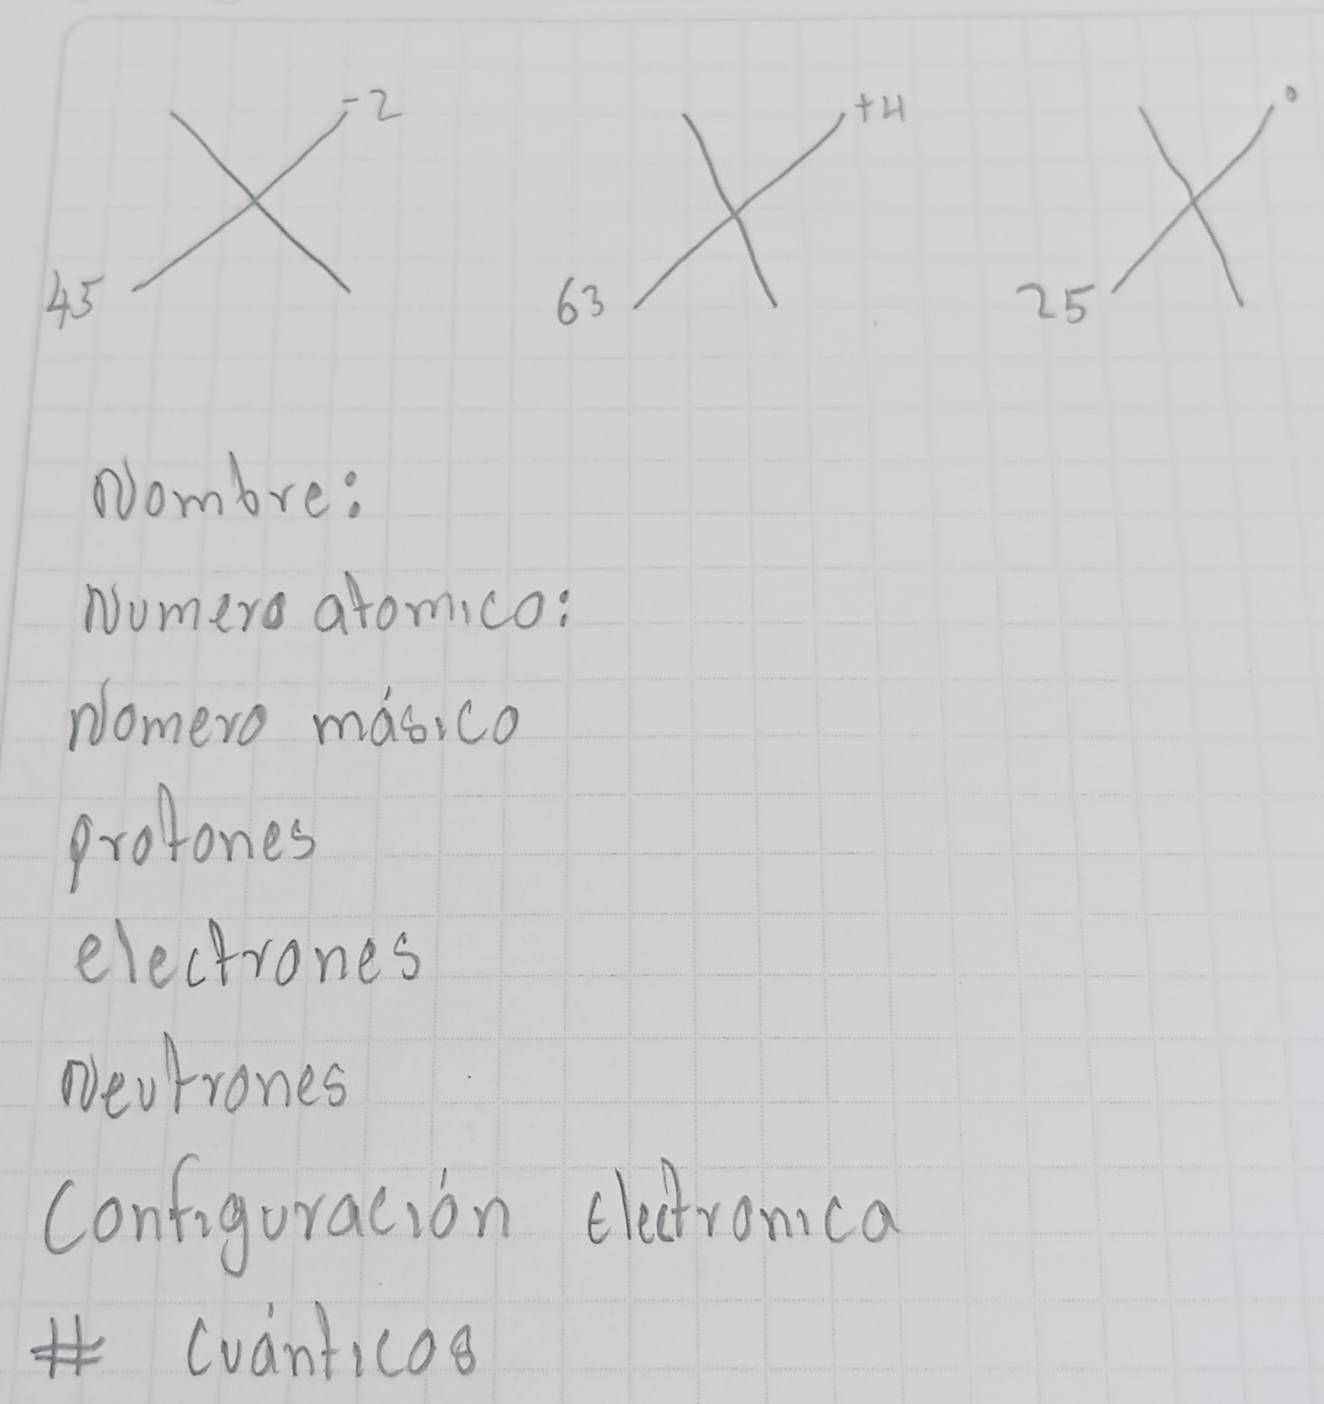 45 X -2 63 X +4 25 X 0
Nombre:
Numero atomico:
Numero másico
protones
electrones
Neutrones
Configuración Electronica
# Cuánticos